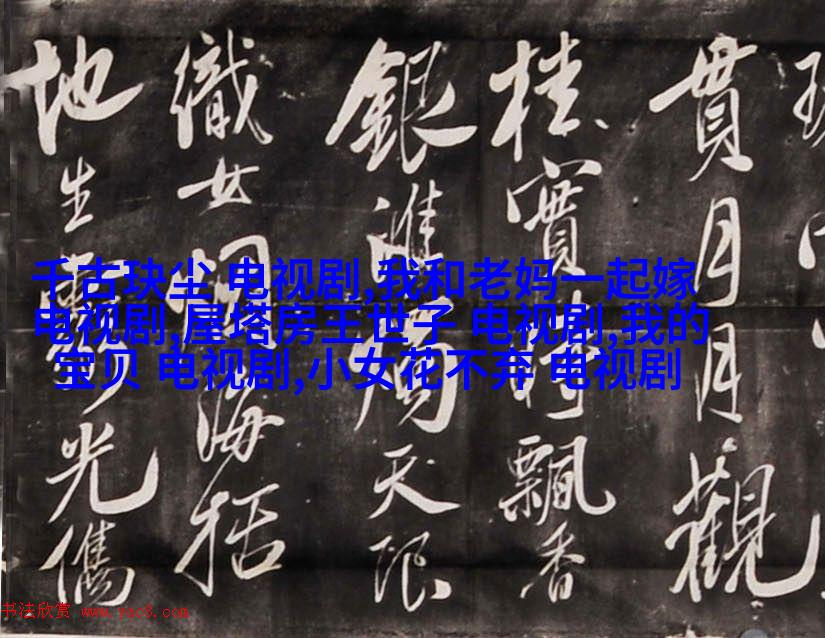 貫月月觀
桂實時飄香
銀淮天限
織女海括
地生光儁
千古玦尘 电视剧,我和老妈一起嫁
电视剧,屋塔房王世子 电视剧,我的
宝贝 电视剧,小女花不弃 电视剧
书法欣赏 www.yac8.com